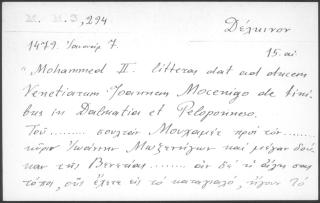 M. M. 3, 294
Δέλκινον
1479. Ἰανουάρ 7.
15. αἰ
"Mohammed II. litteras dat ad ducem
Venetiarum Joannem Mocenigo de fini-
bus in Dalmatia et Peloponneso.
Τοῦ ........ σουλτὰν Μουχαμὲτ πρὸς τὸν ........
κῦριν Ἰωάννην Μοζενῖγον καὶ μέγαν δού-
καν τῆς Βενετίας ....... ἂν δὲ τι ἄλλη σας
τόποι, οὓς ἔχετε εἰς τὸ καταγιαλό, ἤγουν τὸ